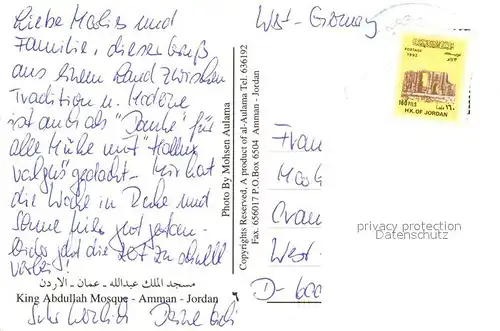 Liebe Marlies und
Familie, dieser Gruß
aus einem Land zwischen
Tradition u. Moderne
ist auch als "Danke" für
alle Mühe mit "Hallux
valgus" gedacht - Mir hat
die Woche in Ruhe und
Sonne hier gut getan -
leider geht die Zeit zu schnell
vorbei!
مسجد الملك عبدالله - عمان - الأردن
King Abdullah Mosque - Amman - Jordan ٦
Sehr herzlich Deine
Photo By Mohsen Aulama
Copyrights Reserved, A product of al-Aulama Tel. 636192
Fax. 656017 P.O.Box 6504 Amman - Jordan
West - Germany
POSTAGE
1993
160 FILS
H.K. OF JORDAN
Frau
West -
D -
privacy protection
Datenschutz